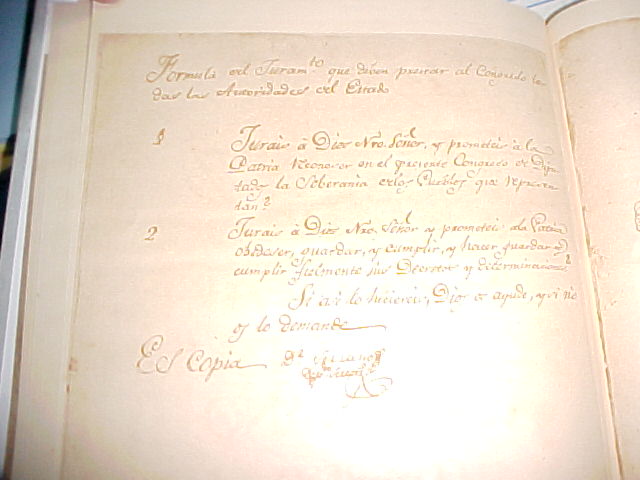 Formula del Juram.to que deben prestar al Congreso to-
das las Autoridades del Estado
1 Jurais à Dios Nro. Señor, y prometeis à la
Patria reconoser en el presente Congreso de Dipu-
tados la Soberania de los Pueblos que represen-
tan?
2 Jurais à Dios Nro. Señor y prometeis à la Patria
obedeser, guardar, y cumplir, y hacer guardar y
cumplir fielmente sus Decretos y determinaciones?
Si asi lo hiciereis, Dios os ayude, y si no
os lo demande
Es Copia